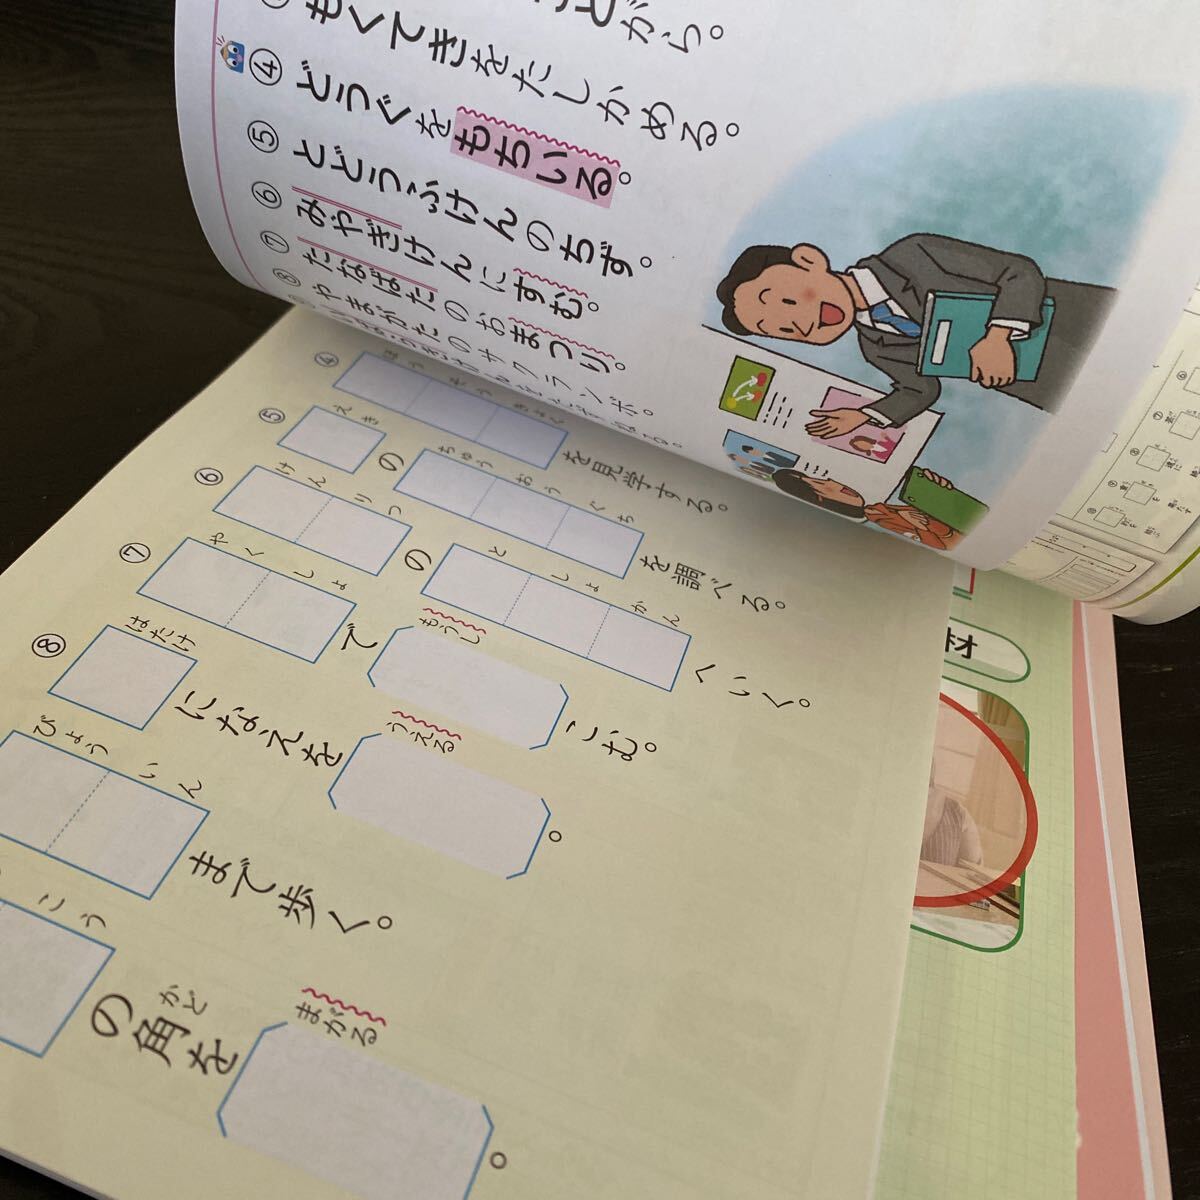 もくてきをたしかめる。
④ どうぐをもちいる。
⑤ とどうふけんのちず。
⑥ みやぎけんにすむ。
⑦ たなばたのおまつり。
⑧ やまがたのサクランボ。
④ ほうそうきょく を見学する。
⑤ えき の ちゅうおうぐち を調べる。
⑥ けんりつ の としょかん へいく。
⑦ やくしょ で もうし こむ。
⑧ はたけ になえを うえる 。
びょういん まで歩く。
こう の角を まがる 。
かど
材